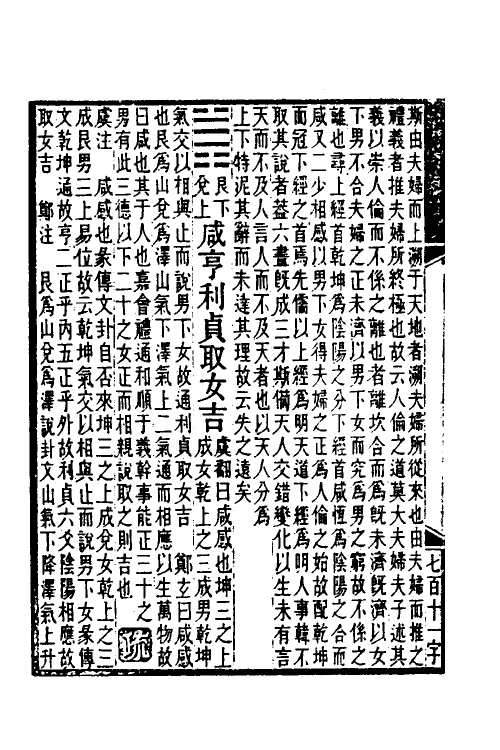 斯由夫婦而上溯于天地者溯夫婦所從來也由夫婦而推之
禮義者推夫婦所終極也故云人倫之道莫大夫婦夫子述其
義以崇人倫而不係之離也者離坎合而為既未濟既濟以女
下男不合夫婦之正未濟以男下女而究為男之窮故不係之
離也尋上經首乾坤為陰陽之分下經首咸恆為陰陽之合而
咸又二少相感以男下女得夫婦之正為人倫之始故配乾坤
而冠下經之首焉先儒以上經為明天道下經為明人事韓不
取其說者葢六畫既成三才斯備天人交錯變化以生未有言
天而不及人言人而不及天者也以天人分為
上下特泥其辭而未達其理故云失之遠矣
艮下
兌上
咸亨利貞取女吉
虞翻曰咸感也坤三之上
成女乾上之三成男乾坤
氣交以相與止而說男下女故通利貞取女吉 鄭玄曰咸感
也艮為山兌為澤山氣下澤氣上二氣通而相應以生萬物故
曰咸也其于人也嘉會禮通和順于義幹事能正三十之
男有此三德以下二十之女正而相親說取之則吉也
疏
虞注 咸感也彖傳文卦自否來坤三之上成兌女乾上之三
成艮男三上易位故云乾坤氣交以相與止而說男下女彖傳
文乾坤通故亨二正乎內五正乎外故利貞六爻陰陽相應故
取女吉 鄭注 艮為山兌為澤說卦文山氣下降澤氣上升
七百十一字